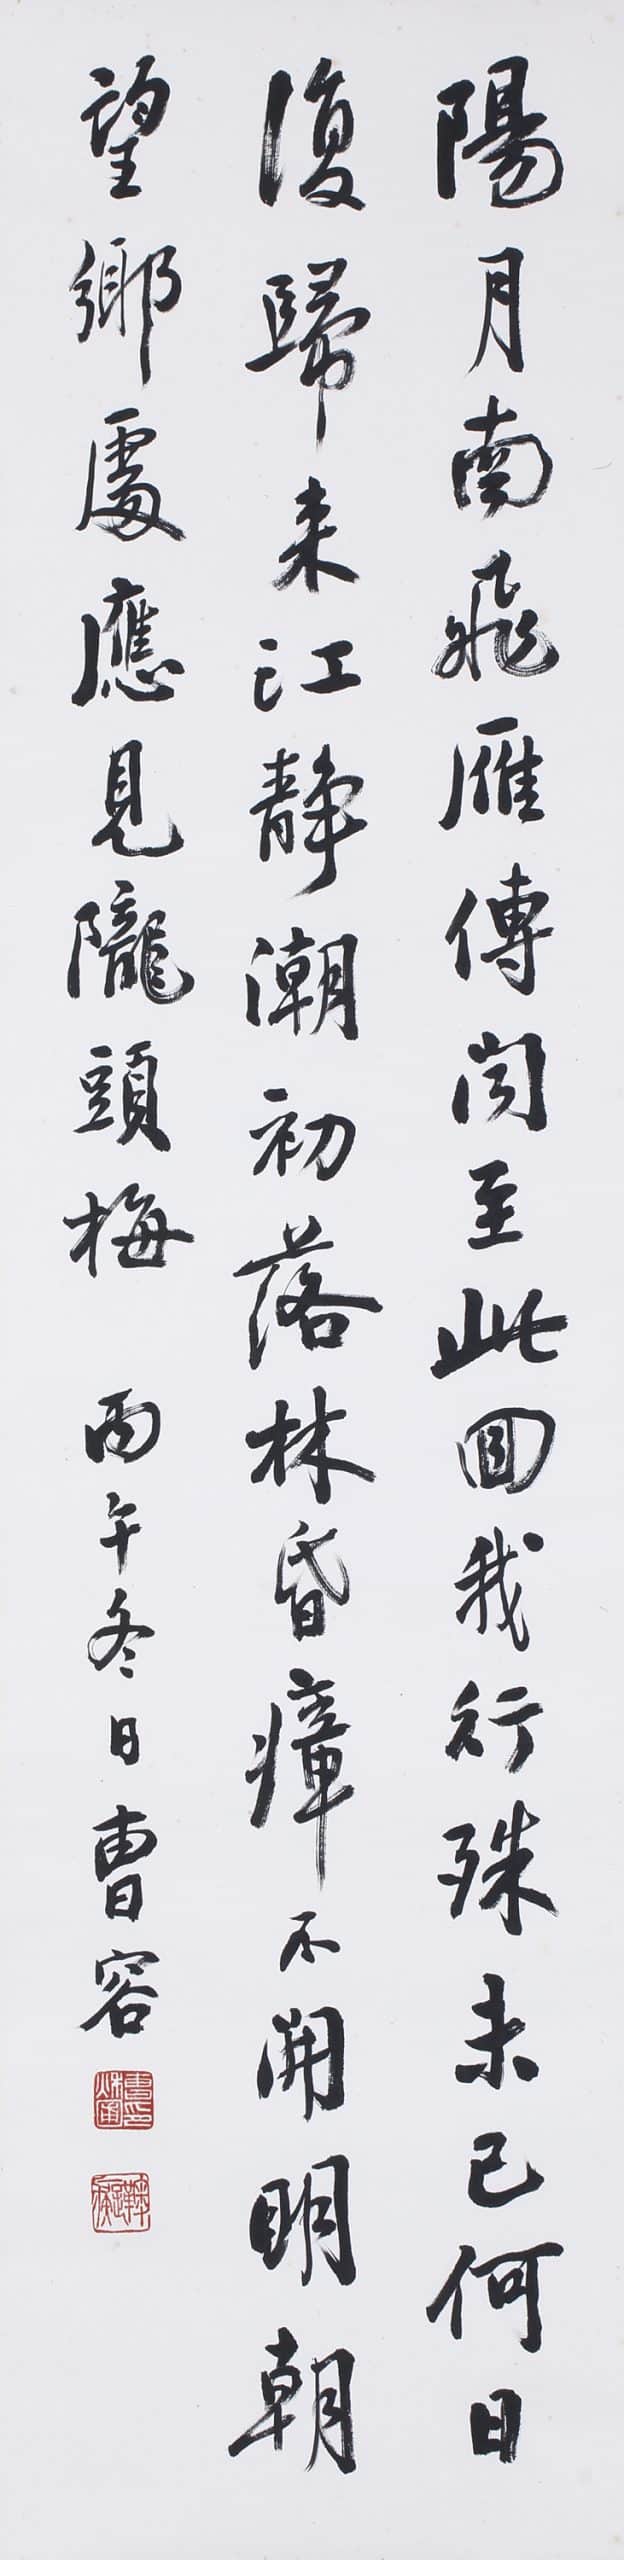 陽月南飛雁傳聞至此回我行殊未已何日
復歸来江静潮初落林昏瘴不開明朝
望鄉處應見隴頭梅 丙午冬日曹容